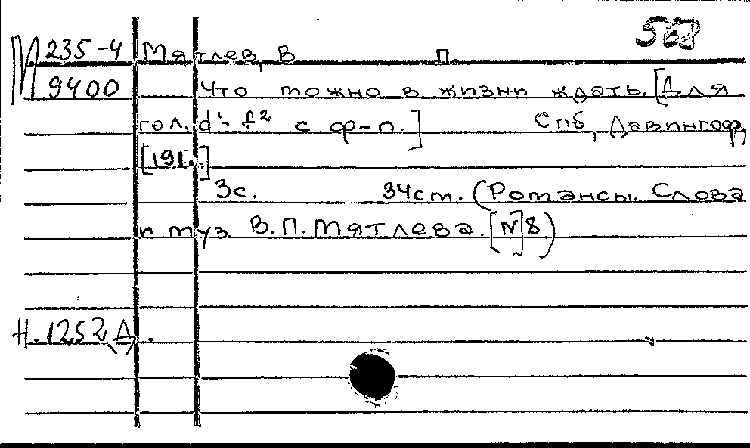 563
М 235-4 Мятлев, В П.
9400 Что можно в жизни ждать. [Для
гол. d¹-f² с ф-п.] Спб, Давингоф,
[191.]
3с. 34см. (Романсы. Слова
и муз. В.П. Мятлева. [№8)
Н.1252,Д.